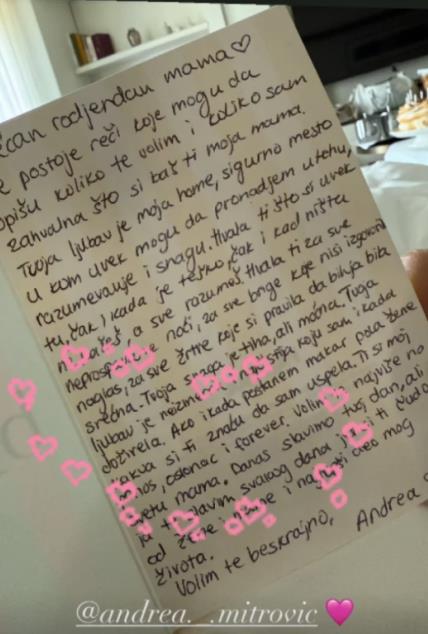 ćan rodjendan mama♡
e postoje reči koje mogu da
opišu koliko te volim i koliko sam
zahvalna što si baš ti moja mama.
Tvoja ljubav je moja home, sigurno mesto
u kom uvek mogu da pronadjem utehu,
razumevanje i snagu. Hvala ti što si uvek
tu, čak i kada je teško, čak i kad ništa
a sve razumeš. Hvala ti za sve
noći, za sve brige koje nisi izgovorila
naglas, za sve žrtve koje si pravila da bih ja bila
srećna. Tvoja snaga je tiha, ali moćna. Tvoja
ljubav je koju sam ikada
doživela. Ako ikada postanem makar pola žene
kakva si ti znaću da sam uspela. Ti si moj
ponos, oslonac i forever. Volim najviše na
svetu mama. Danas slavimo tvoj dan, ali
ja slavim svakog dana ti čudo
od žene i mame i deo mog
života.
Volim te beskrajno, Andrea
@andrea._.mitrovic 🩷